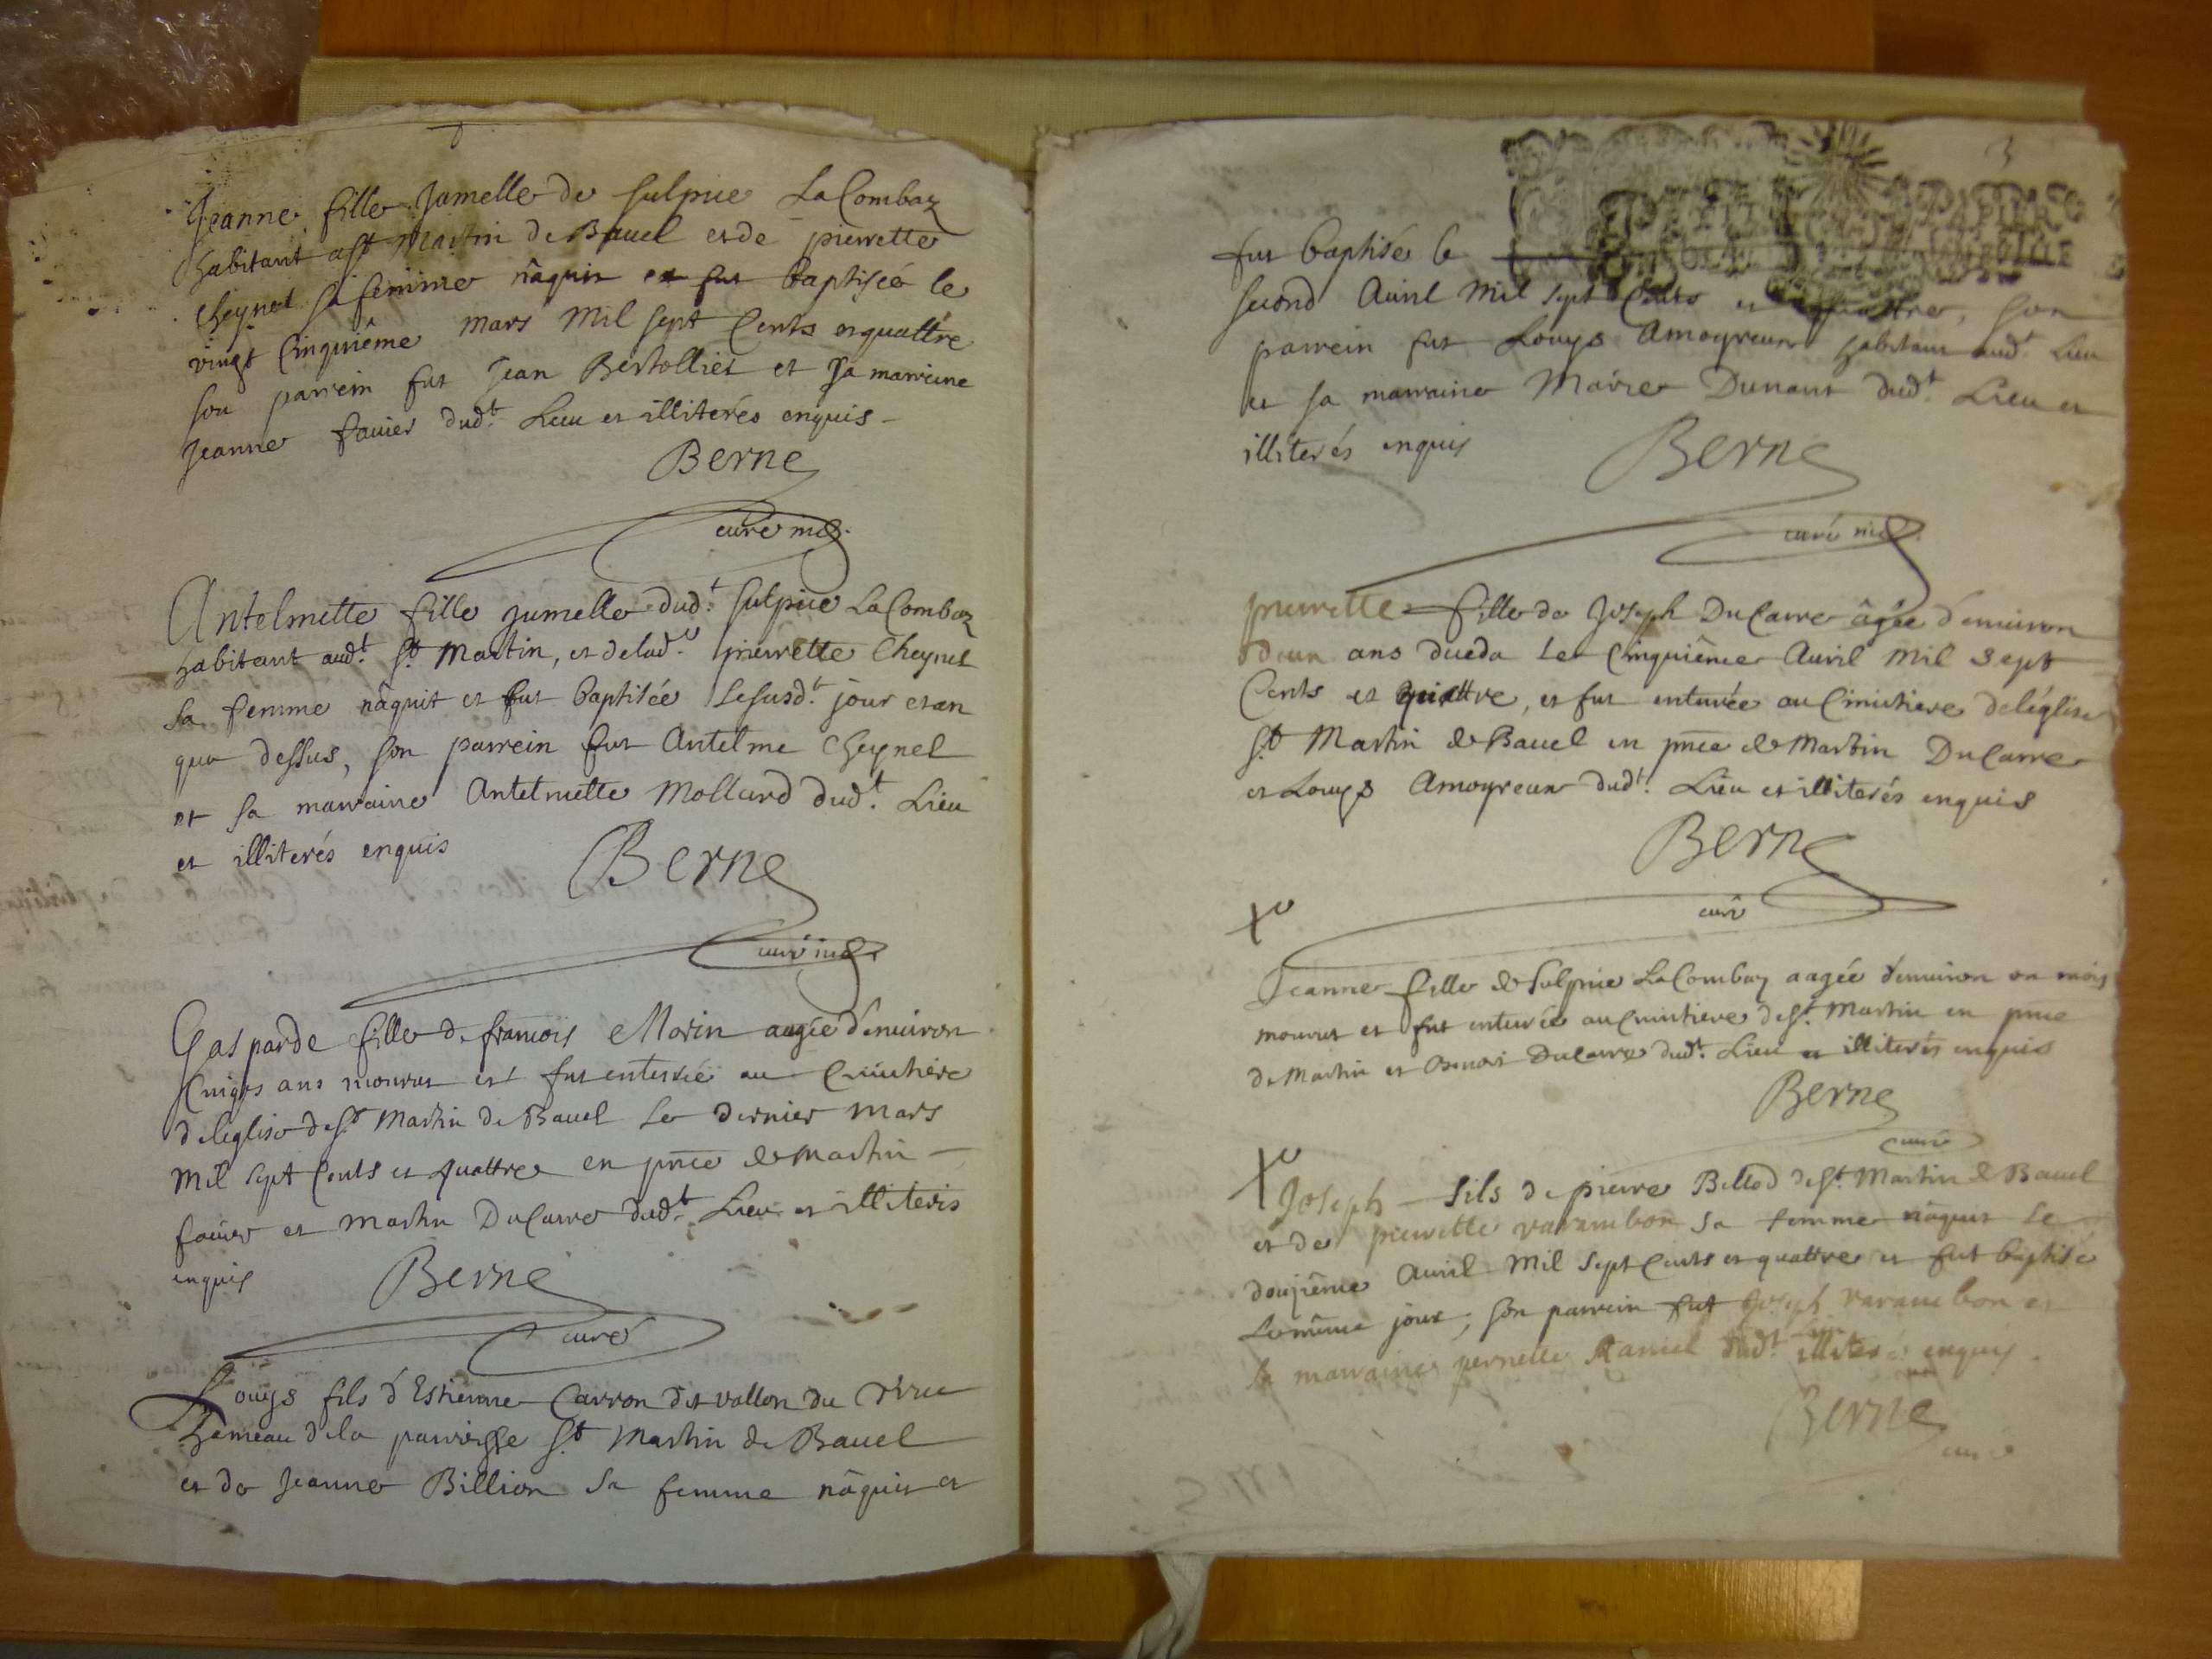 Jeanne fille Jumelle de Sulpice LaCombaz
habitant a St Martin de Bavel et de pierrette
Cheynel sa femme nâquit et fut baptisée le
vingt Cinquiême mars mil sept Cents et quattre
son parrein fut Jean Bertollier et sa marreine
Jeanne favier dudt. Lieu et illiterés enquis
Berne
curé
Antelmette fille jumelle dudt. Sulpice LaCombaz
habitant audt. St. Martin, et delade. pierrette Cheynel
sa femme nâquit et fut baptisée le susdt. jour et an
que dessus, son parrein fut Antelme Cheynel
et sa marraine Antelmette Mollard dudt. Lieu
et illiterés enquis
Berne
curé
Gasparde fille de françois Morin aagée d'enuiron
Cinqs ans mourut et fut enterrée au Cimitiere
de leglise de St Martin de Bavel Le dernier mars
mil sept Cents et quattre en pnce de martin
favier et martin DuCarre dudt. Lieu et illiterés
enquis
Berne
curé
Louys fils d'Estienne Carron dit vallon du
hameau dela parroisse St. Martin de Bavel
et de Jeanne Billion sa femme nâquit et
3
fut baptisé le
second Avril Mil sept Cents et quattre, son
parrein fut Louys Amoyreux habitant audt. Lieu
et sa marraine Marie Dunant dudt. Lieu et
illiterés enquis
Berne
curé
pierrette fille de Joseph DuCarre âgée d'enuiron
d'un ans le Cinquiême Avril Mil sept
Cents et quattre, et fut enterrée au Cimitiere de léglise
St. Martin de Bavel en pnce de Martin DuCarre
et Louys Amoyreux dudt. Lieu et illiterés enquis
Berne
curé
Jeanne fille de Sulpice LaCombaz aagée d'enuiron un mois
mourut et fut enterrée au Cimitiere de St. Martin en pnce
de Martin et Benoit DuCarre dudt. Lieu et illiterés enquis
Berne
curé
Joseph fils de pierre Billod de St. Martin de Bavel
et de pierrette varambon sa femme nâquit le
douziême Avril Mil sept Cents et quattre et fut baptisé
Le même jour, son parrein fut Joseph varambon et
la marraine pernette dudt. lieu illiterés enquis.
Berne
curé